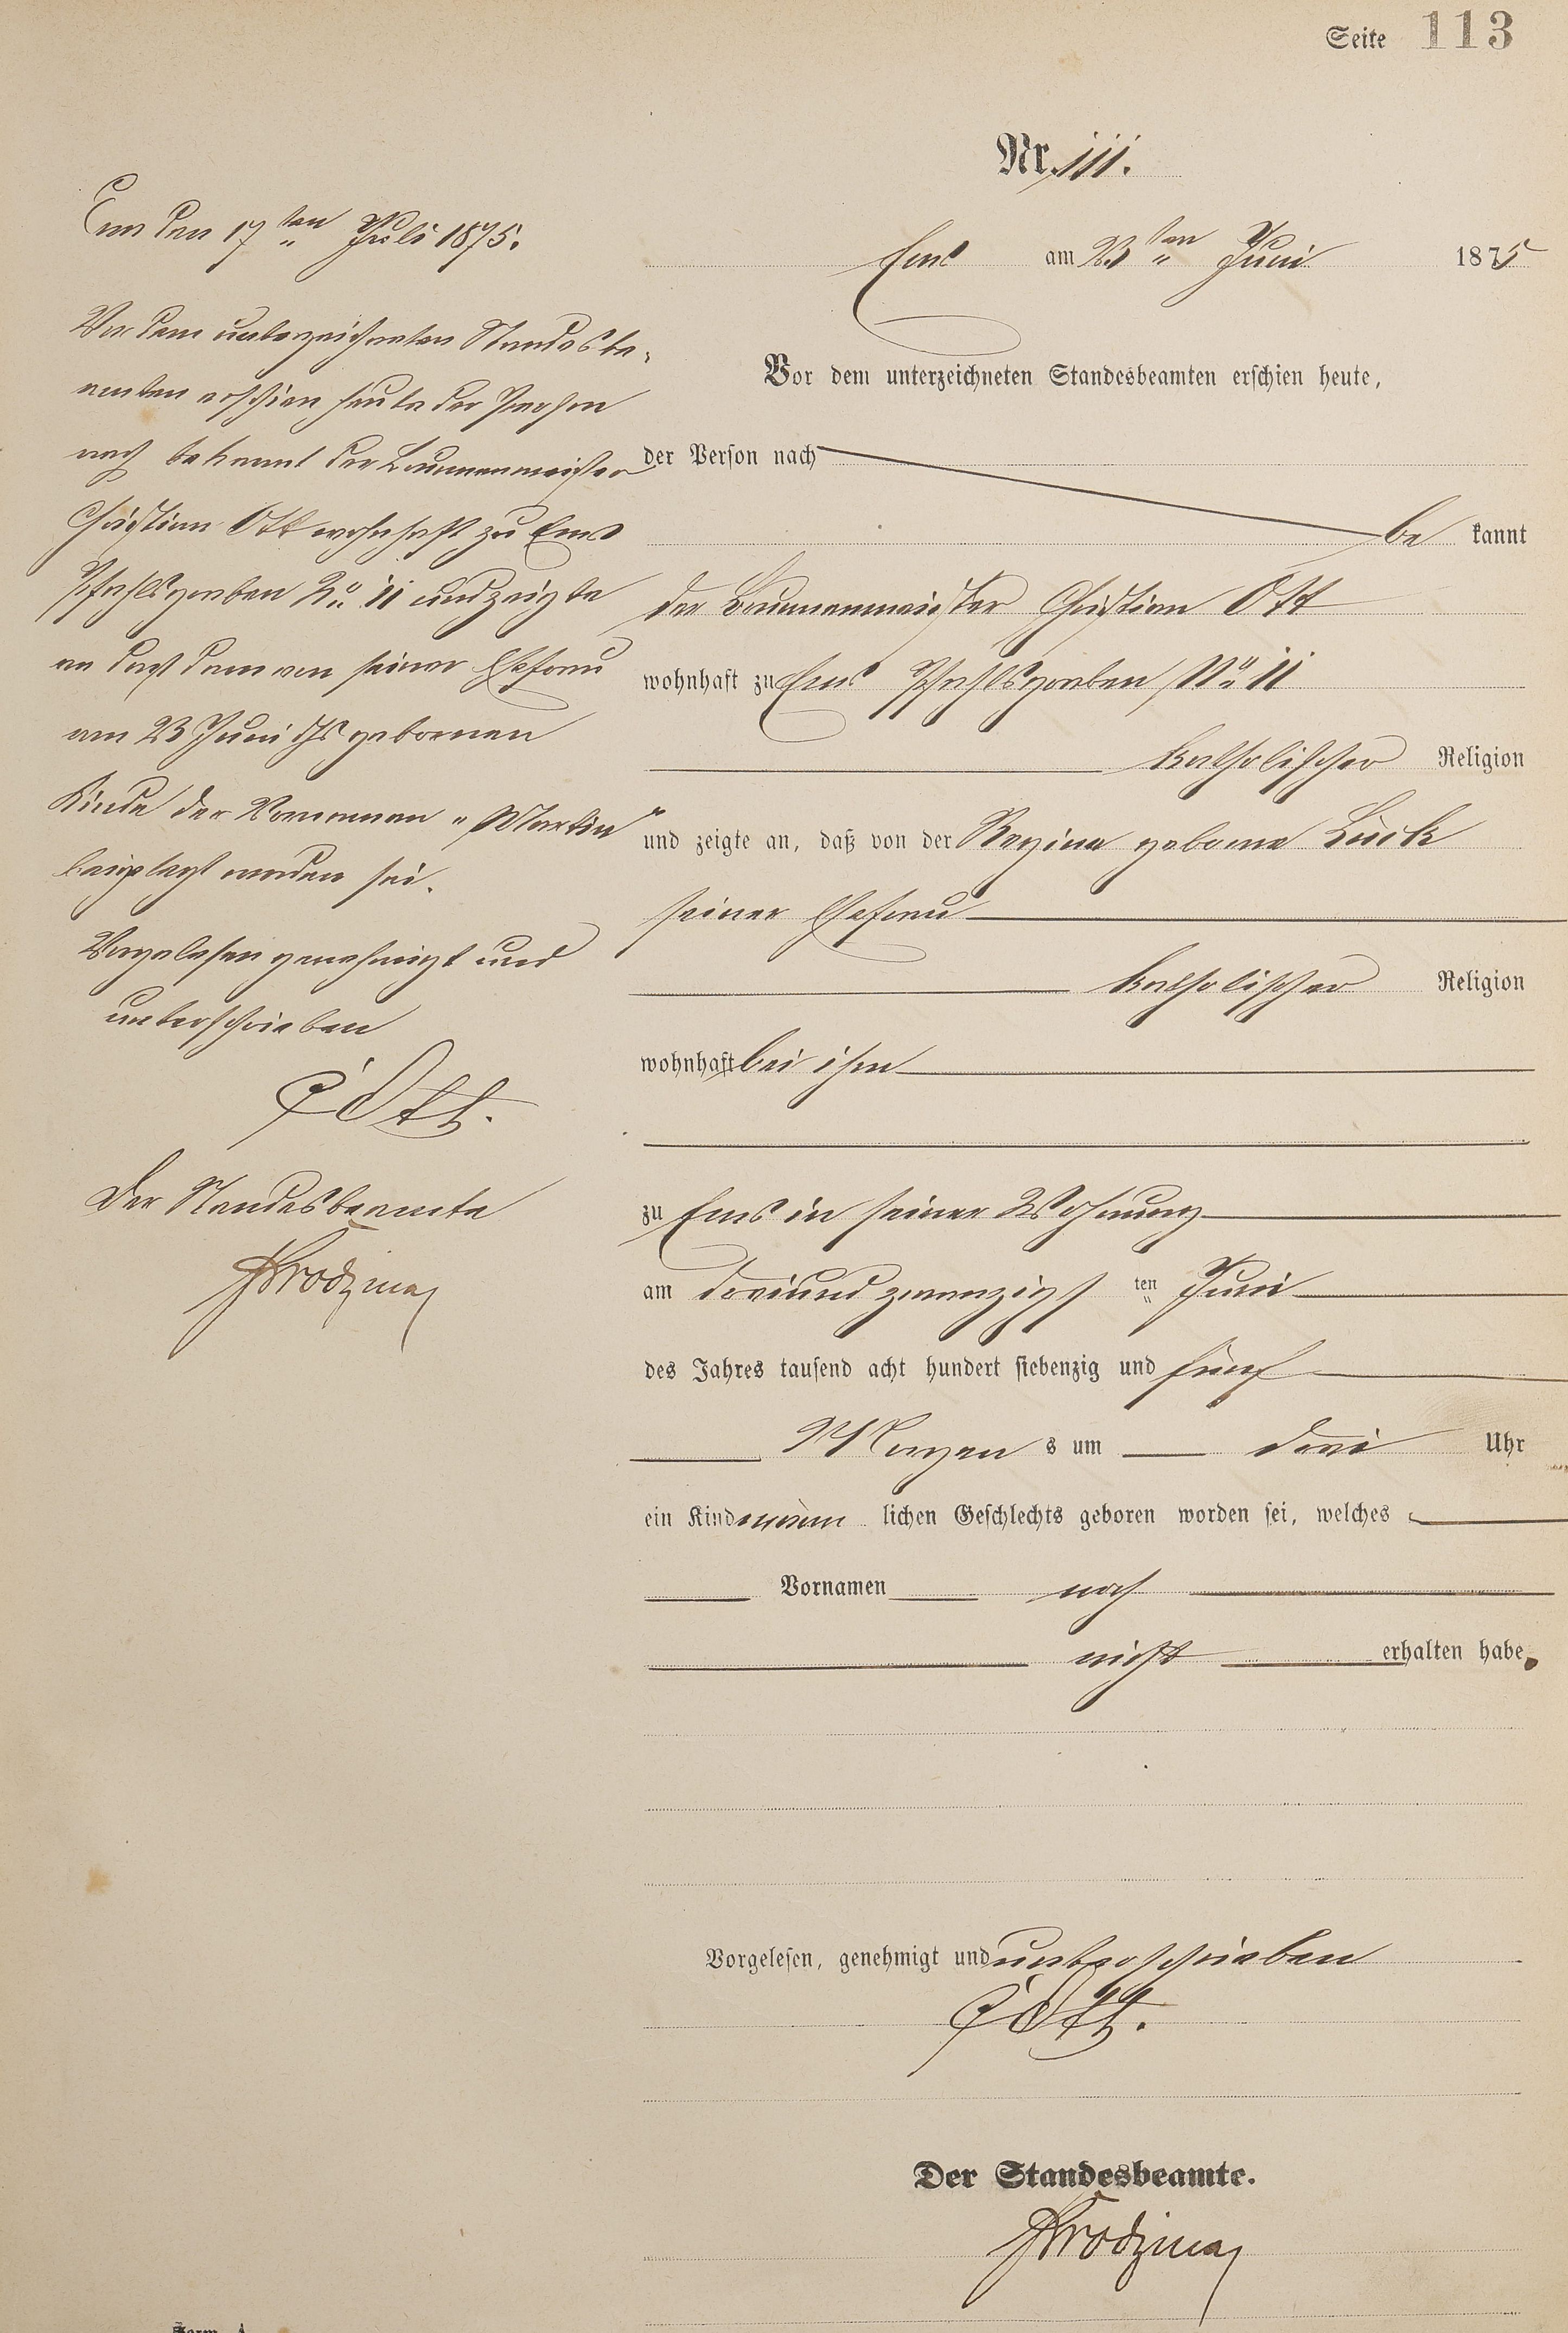 Seite 113
Nr. 111.
Ems am 23 ten Juni 1875
Vor dem unterzeichneten Standesbeamten erschien heute,
der Person nach
be kannt
der Brunnenmeister Christian Ott
wohnhaft zu Ems Pfahlsgraben No 11
katholischer Religion
und zeigte an, daß von der Regina geborene Lück
seiner Ehefrau
katholischer Religion
wohnhaft bei ihm
zu Ems in seiner Wohnung
am dreiundzwanzigst ten Juni
des Jahres tausend acht hundert siebenzig und fünf
Morgen s um drei Uhr
ein Kind männ lichen Geschlechts geboren worden sei, welches
Vornamen noch
nicht erhalten habe.
Vorgelesen, genehmigt und unterschrieben
C Ott.
Der Standesbeamte.
Ems den 17 ten Juli 1875.
Vor dem unterzeichneten Standesbe-
amten erschien heute der Person
nach bekannt der Brunnenmeister
Christian Ott wohnhaft zu Ems
Pfahlsgraben No 11 und zeigte
an daß dem von seiner Ehefrau
am 23 Juni ds Js gebornen
Kinde der Vornamen "Martin"
beigelegt worden sei.
Vorgelesen genehmigt und
unterschrieben
C Ott.
Der Standesbeamte